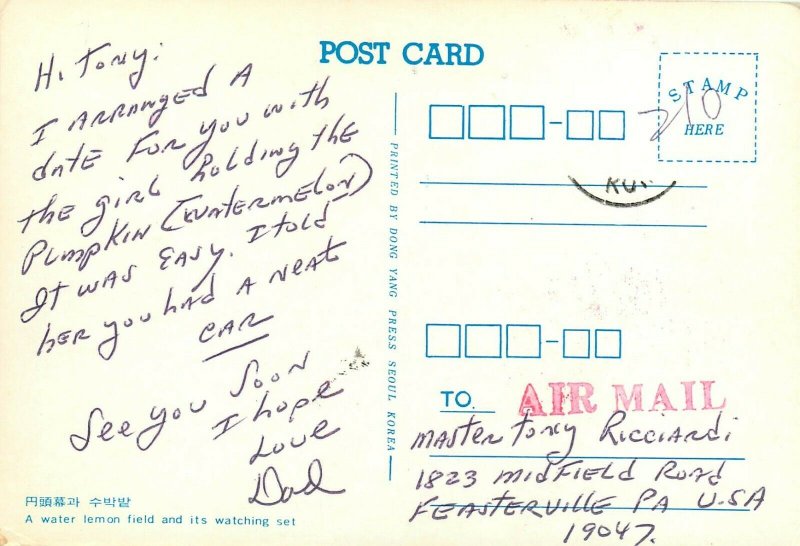 POST CARD
Hi Tony:
I ARRANGED A
date FOR you with
the girl holding the
Pumpkin (WATERMELON)
It was EASY. I told
her you had A neat
CAR
See you Soon
I hope
Love
Dad
円頭幕과 수박밭
A water lemon field and its watching set
PRINTED BY DONG YANG PRESS SEOUL KOREA
STAMP
HERE
210
TO
AIR MAIL
Master Tony Ricciardi
1823 midfield Road
FEASTERVILLE PA U.SA
19047.